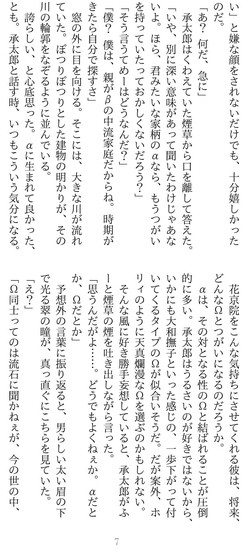 い」と嫌な顔をされないだけでも、十分嬉しかった
のだ。
「あ？ 何だ、急に」
承太郎はくわえていた煙草から口を離して答えた。
「いや、別に深い意味があって聞いたわけじゃない
よ。ほら、君みたいな家柄のαなら、もうつがい
を持っていたっておかしくないだろう？」
「そう言うてめーはどうなんだ？」
「僕？ 僕は、親がβの中流家庭だからね。時期が
きたら自分で探すさ」
窓の外に目を向ける。そこには、大きな川が流れ
ていた。ぽつりぽつりとした建物の明かりが、その
川の輪郭をなぞるように並んでいる。
誇らしい、と心底思った。αに生まれて良かった、
とも。承太郎と話す時、いつもこういう気分になる。
花京院をこんな気持ちにさせてくれる彼は、将来、
どんなΩとつがいになるのだろうか。
αは、その対となる性のΩと結ばれることが圧倒
的に多い。承太郎はうるさいのが好きではないから、
いかにも大和撫子といった感じの、一歩下がって付
いてくるタイプのΩが似合いそうだ。だが案外、ホ
リィのように天真爛漫なΩを選ぶのかもしれない。
そんな風に好き勝手妄想していると、承太郎がふ
ーと煙草の煙を吐き出しながら言った。
「思うんだがよ……。どうでもよくねぇか。αだと
か、Ωだとか」
予想外の言葉に振り返ると、男らしい太い眉の下
で光る翠の瞳が、真っ直ぐにこちらを見ていた。
「え？」
「Ω同士ってのは流石に聞かねぇが、今の世の中、
7